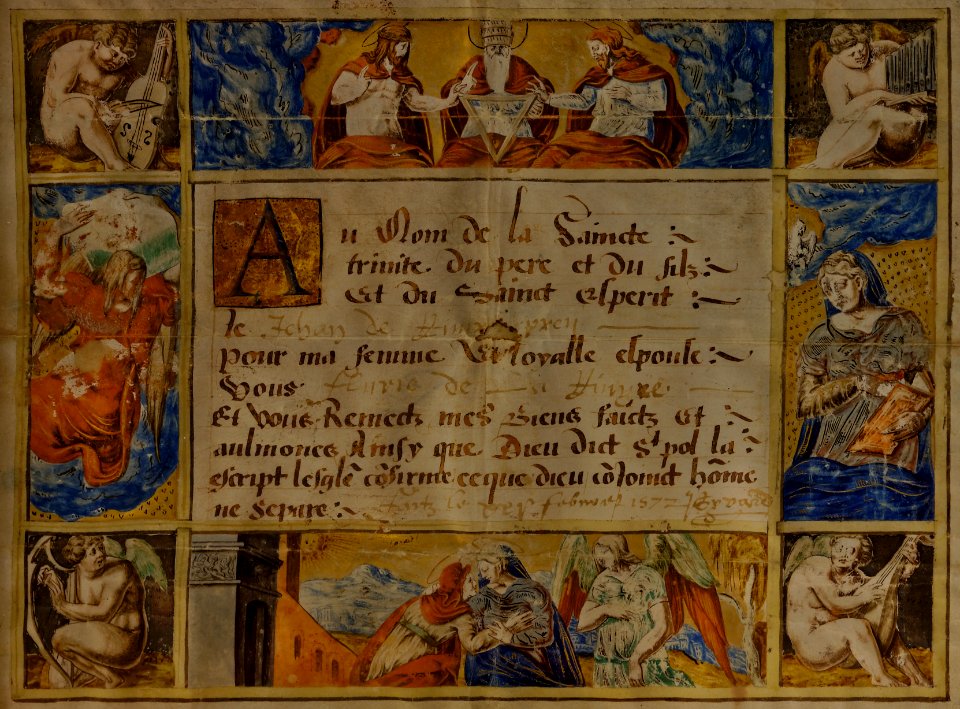 Au Nom de la Saincte
trinite. Du pere et du filz
Et du Sainct esperit
Je Jehan de
pour ma femme Et loyalle espouse
Vous de
Et vous Remectz mes biens faictz et
aulmones Ainsy que Dieu dict St pol la
escript leglē cōfirme ce que dieu cōioinct hōme
ne separe faict le febvrier 1572